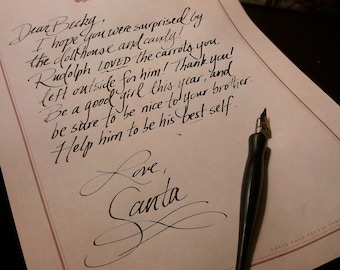 Dear Becky,
I hope you were surprised by
the dollhouse and candy!
Rudolph LOVED the carrots you
left outside for him! Thank you!
Be a good girl this year, and
be sure to be nice to your brother.
Help him to be his best self.
Love,
Santa